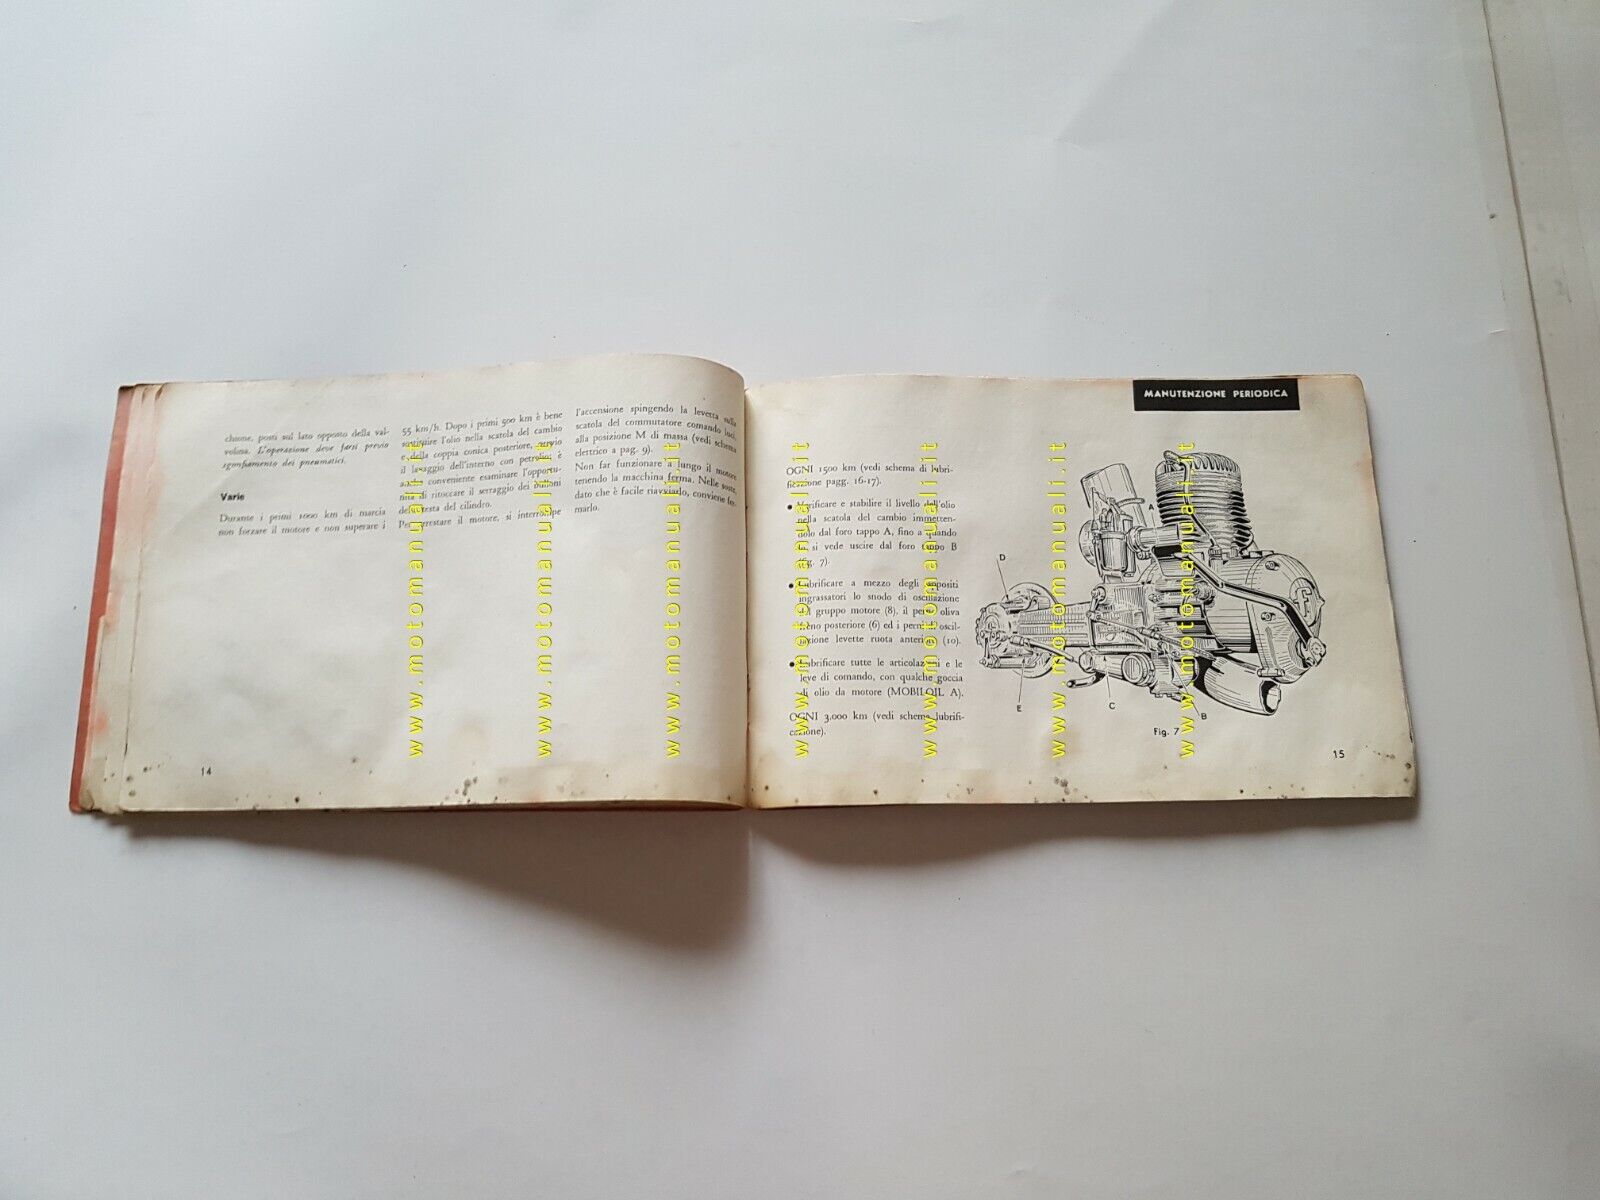 chione, posti sul lato opposto della val-
volina. L'operazione deve farsi previo
sgonfiamento dei pneumatici.
Varie
Durante i primi 1000 km di marcia
non forzare il motore e non superare i
55 km/h. Dopo i primi 500 km è bene
sostituire l'olio nella scatola del cambio
e della coppia conica posteriore, previo
il lavaggio dell'interno con petrolio; è
anche conveniente esaminare l'opportu-
nità di ritoccare il serraggio dei bulloni
della testa del cilindro.
Per arrestare il motore, si interrompe
l'accensione spingendo la levetta sulla
scatola del commutatore comando luci,
alla posizione M di massa (vedi schema
elettrico a pag. 9).
Non far funzionare a lungo il motore
tenendo la macchina ferma. Nelle soste,
dato che è facile riavviarlo, conviene fer-
marlo.
14
MANUTENZIONE PERIODICA
OGNI 1500 km (vedi schema di lubri-
ficazione pagg. 16-17).
• Verificare e stabilire il livello dell'olio
nella scatola del cambio immetten-
dolo dal foro tappo A, fino a quando
lo si vede uscire dal foro tappo B
(fig. 7).
• Lubrificare a mezzo degli appositi
ingrassatori lo snodo di oscillazione
gruppo motore (8), il perno oliva
freno posteriore (6) ed i perni oscil-
lazione levette ruota anteriore (10).
• Lubrificare tutte le articolazioni e le
leve di comando, con qualche goccia
di olio da motore (MOBILOIL A).
OGNI 3.000 km (vedi schema lubrifi-
cazione).
A
D
E
C
B
Fig. 7
15
www.motomanuali.it
www.motomanuali.it
www.motomanuali.it
www.motomanuali.it
www.motomanuali.it
www.motomanuali.it
www.motomanuali.it